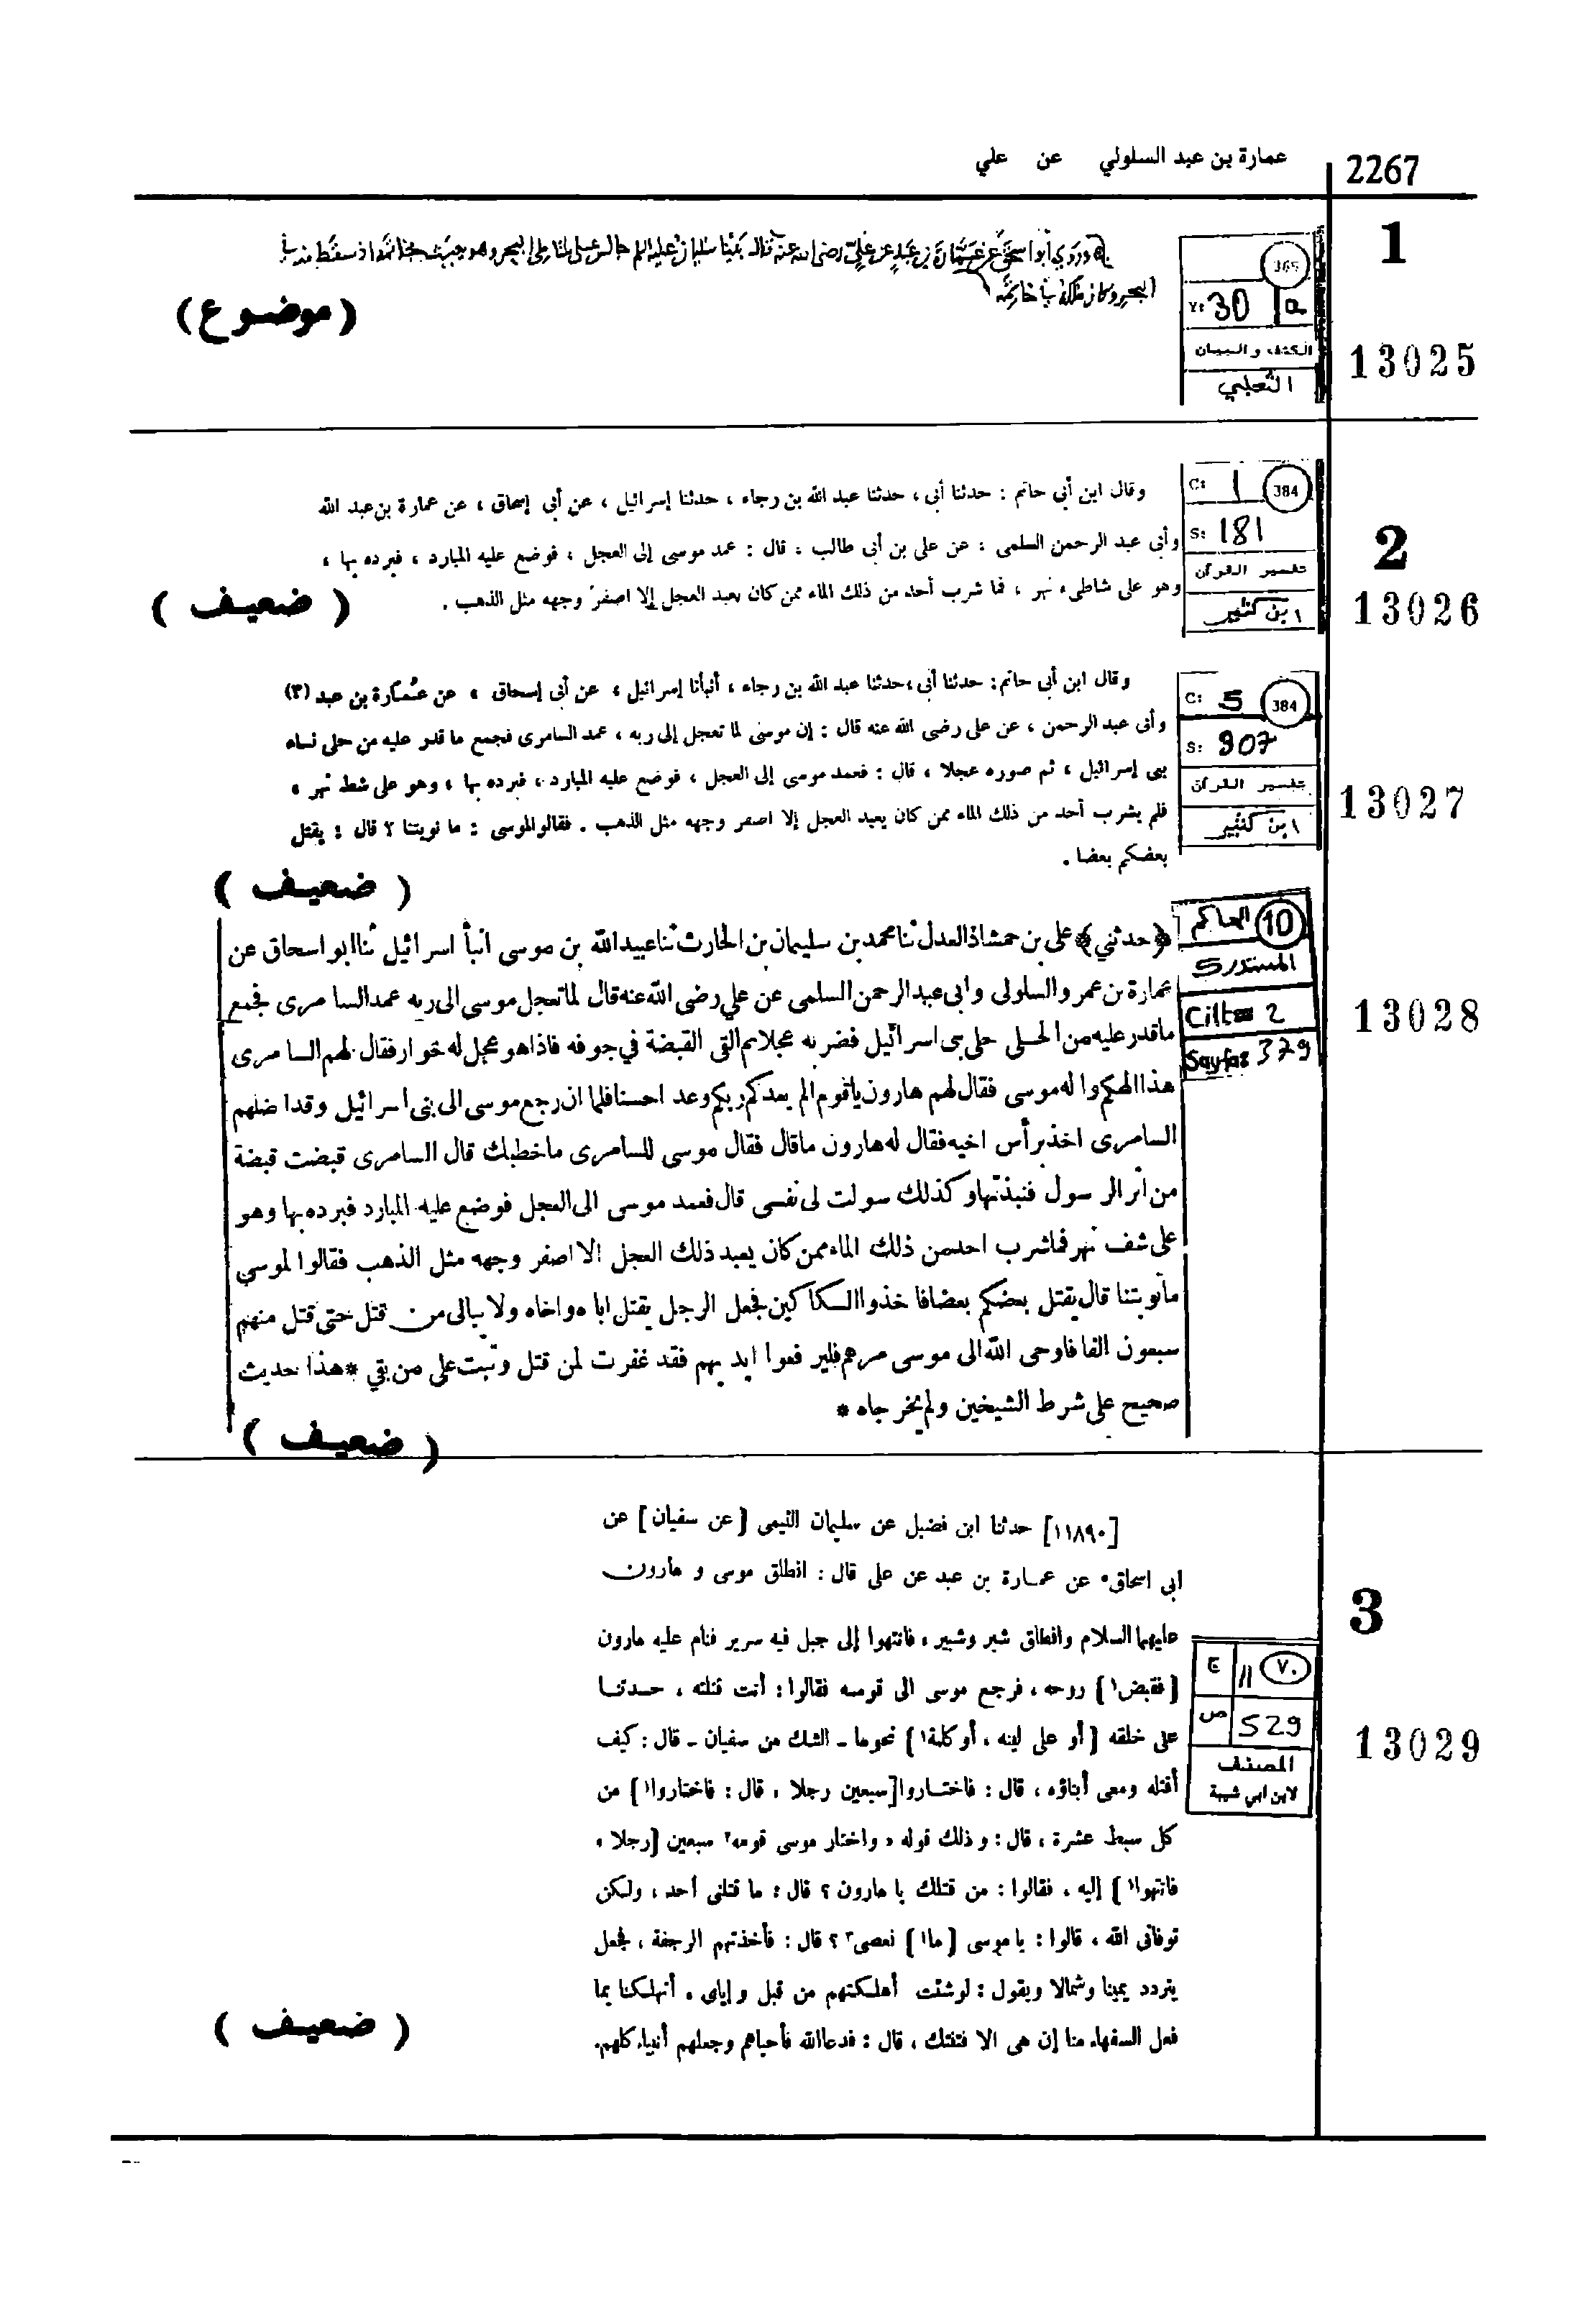 2267
عمارة بن عبد السلولي عن علي
1
365
Y: 30 P
الكشف والبيان
الثعلبي
13025
وروي أبو اسحق عن عمارة بن عبد عن علي رضى الله عنه قال بينا سليمان عليه السلم جالس على شاطى البحر وهو يعبث بخاتمه اذ سقط منه في
البحر وكان ملكه في خاتمه
(موضوع)
2
C: 1 384
S: 181
تفسير القرآن
ابن كثير
13026
وقال ابن أبي حاتم : حدثنا أبى ، حدثنا عبد الله بن رجاء ، حدثنا إسرائيل ، عن أبى إسحاق ، عن عمارة بن عبد الله
وأبى عبد الرحمن السلمى ، عن على بن أبى طالب ، قال : عمد موسى إلى العجل ، فوضع عليه المبارد ، فبرده بها ،
وهو على شاطىء نهر ، فما شرب أحد من ذلك الماء ممن كان يعبد العجل إلا اصفر وجهه مثل الذهب .
( ضعيف )
C: 5 384
S: 307
تفسير القرآن
ابن كثير
13027
وقال ابن أبى حاتم : حدثنا أبى ، حدثنا عبد الله بن رجاء ، أنبأنا إسرائيل ، عن أبى إسحاق ، عن عُمَارة بن عبد (٣)
وأبى عبد الرحمن ، عن على رضى الله عنه قال : إن موسى لما تعجل إلى ربه ، عمد السامرى فجمع ما قدر عليه من حلى نساء
بنى إسرائيل ، ثم صوره عجلا ، قال : فعمد موسى إلى العجل ، فوضع عليه المبارد ، فبرده بها ، وهو على شط نهر ،
فلم يشرب أحد من ذلك الماء ممن كان يعبد العجل إلا اصفر وجهه مثل الذهب . فقالوا لموسى : ما توبتنا ؟ قال : يقتل
بعضكم بعضا .
( ضعيف )
الحاكم 10
المستدرك
Cilt 2
Sayfa: 379
13028
﴿حدثني﴾ على بن حمشاذ العدل ثنا محمد بن سليمان بن الحارث ثنا عبيد الله بن موسى انبأ اسرائيل ثنا ابو اسحاق عن
عمارة بن عمرو السلولى وابى عبد الرحمن السلمى عن علي رضى الله عنه قال لما تعجل موسى الى ربه عمد السامرى فجمع
ما قدر عليه من الحلى حلى بنى اسرائيل فضربه عجلا ثم القى القبضة في جوفه فاذا هو عجل له خوار فقال لهم السامرى
هذا الهكم واله موسى فقال لهم هارون يا قوم الم يعدكم ربكم وعدا حسنا فلما ان رجع موسى الى بنى اسرائيل وقد اضلهم
السامرى اخذ برأس اخيه فقال له هارون ما قال فقال موسى للسامرى ما خطبك قال السامرى قبضت قبضة
من أثر الرسول فنبذتها وكذلك سولت لى نفسى قال فعمد موسى الى العجل فوضع عليه المبارد فبرده بها وهو
على شف نهر فما شرب احد من ذلك الماء ممن كان يعبد ذلك العجل الا اصفر وجهه مثل الذهب فقالوا لموسى
ما توبتنا قال يقتل بعضكم بعضا فاخذوا السكاكين فجعل الرجل يقتل اباه واخاه ولا يبالى من قتل حتى قتل منهم
سبعون الفا فاوحى الله الى موسى مرهم فليرفعوا ايديهم فقد غفرت لمن قتل وتبت على من بقي * هذا حديث
صحيح على شرط الشيخين ولم يخرجاه *
( ضعيف )
3
ج 11 ٧٠
ص 529
المصنف
لابن ابي شيبة
13029
[١١٨٩٠] حدثنا ابن فضيل عن سليمان التيمى [عن سفيان] عن
أبى اسحاق عن عمارة بن عبد عن على قال : انطلق موسى و هارون
عليهما السلام وانطلق شبر وشبير ، فانتهوا إلى جبل فيه سرير فنام عليه هارون
[فقبض١] روحه ، فرجع موسى الى قومه فقالوا : أنت قتلته ، حسدتنا
على خلقه [أو على لينه ، أو كلمة١] نحوها ـ الشك من سفيان ـ قال : كيف
أقتله ومعى أبناؤه ، قال : فاختاروا [سبعين رجلا ، قال : فاختاروا١] من
كل سبط عشرة ، قال : وذلك قوله « واختار موسى قومه٢ سبعين [رجلا »
فانتهوا١] إليه ، فقالوا : من قتلك يا هارون ؟ قال : ما قتلنى أحد ، ولكن
توفانى الله ، قالوا : يا موسى [ما١] نعصى٣ ؟ قال : فأخذتهم الرجفة ، فجعل
يتردد يمينا وشمالا ويقول : لو شئت أهلكتهم من قبل و إياى ، أتهلكنا بما
فعل السفهاء منا إن هى الا فتنتك ، قال : فدعا الله فأحياهم وجعلهم أنبياء كلهم .
( ضعيف )